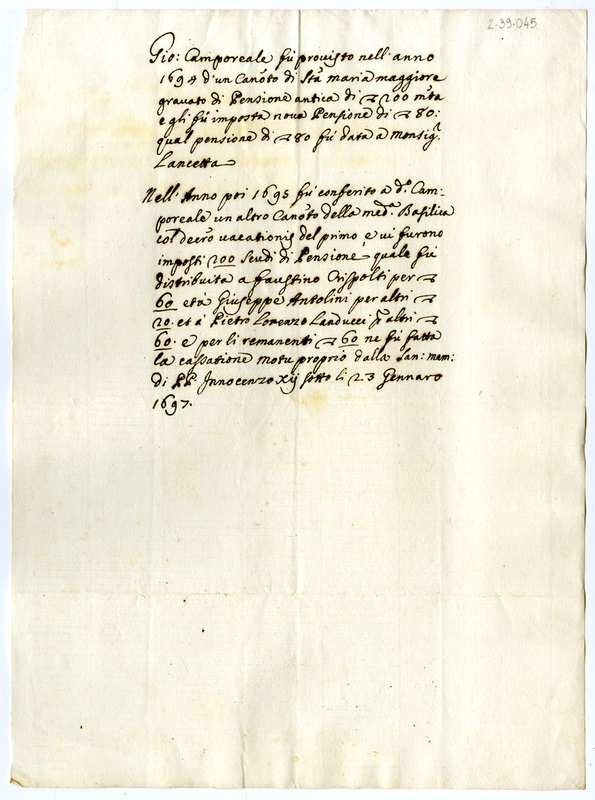 2-39-045
Gio: Camporeale fù provisto nell'anno
1694 d'un Canoto di Sta maria maggiore
gravato di Pensione antica di 200 m.ta
e gli fù imposta nova Pensione di 80:
qual pensione di 80 fù data a Monsig.r
Lancetta
Nell'Anno poi 1695 fù conferito a d.o Cam-
poreale un altro Canoto della med.a Basilica
col decro vacationis del primo, e vi furono
imposti 200 Scudi di Pensione, quale fù
distribuita a Faustino Crispolti per
60 et à Giuseppe Antolini per altri
20. et à Pietro Lorenzo Landucci altri
60. e per li remanenti 60 ne fù fatta
la cassatione motu proprio dalla San: mem:
di PP. Innocenzo xij sotto li 23 Gennaro
1697.